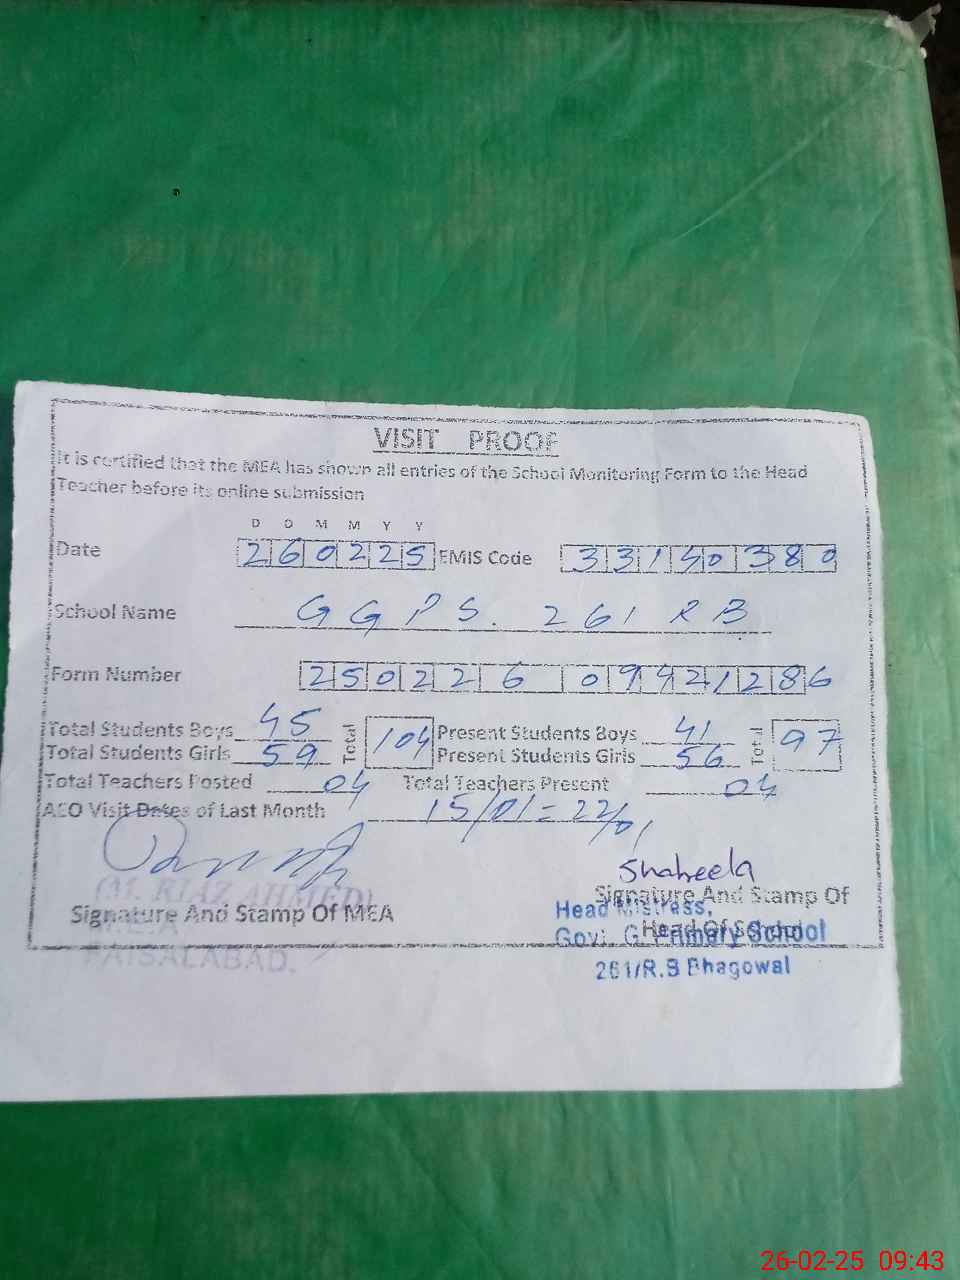 VISIT PROOF
It is certified that the MEA has shown all entries of the School Monitoring Form to the Head
Teacher before its online submission
D D M M Y Y
Date 260225 EMIS Code 33130380
School Name GGPS. 261 RB
Form Number 250226 09421286
Total Students Boys 45 Total 104 Present Students Boys 41 Total 97
Total Students Girls 59 Present Students Girls 56
Total Teachers Posted 04 Total Teachers Present 04
AEO Visit Dates of Last Month 15/01 = 22/01
Shaheela
(M. RIAZ AHMED)
Signature And Stamp Of MEA
M.E.A
FAISALABAD.
Signature And Stamp Of
Head Of School
Head Mistress,
Govt. G. Primary School
261/R.B Bhagowal
26-02-25 09:43